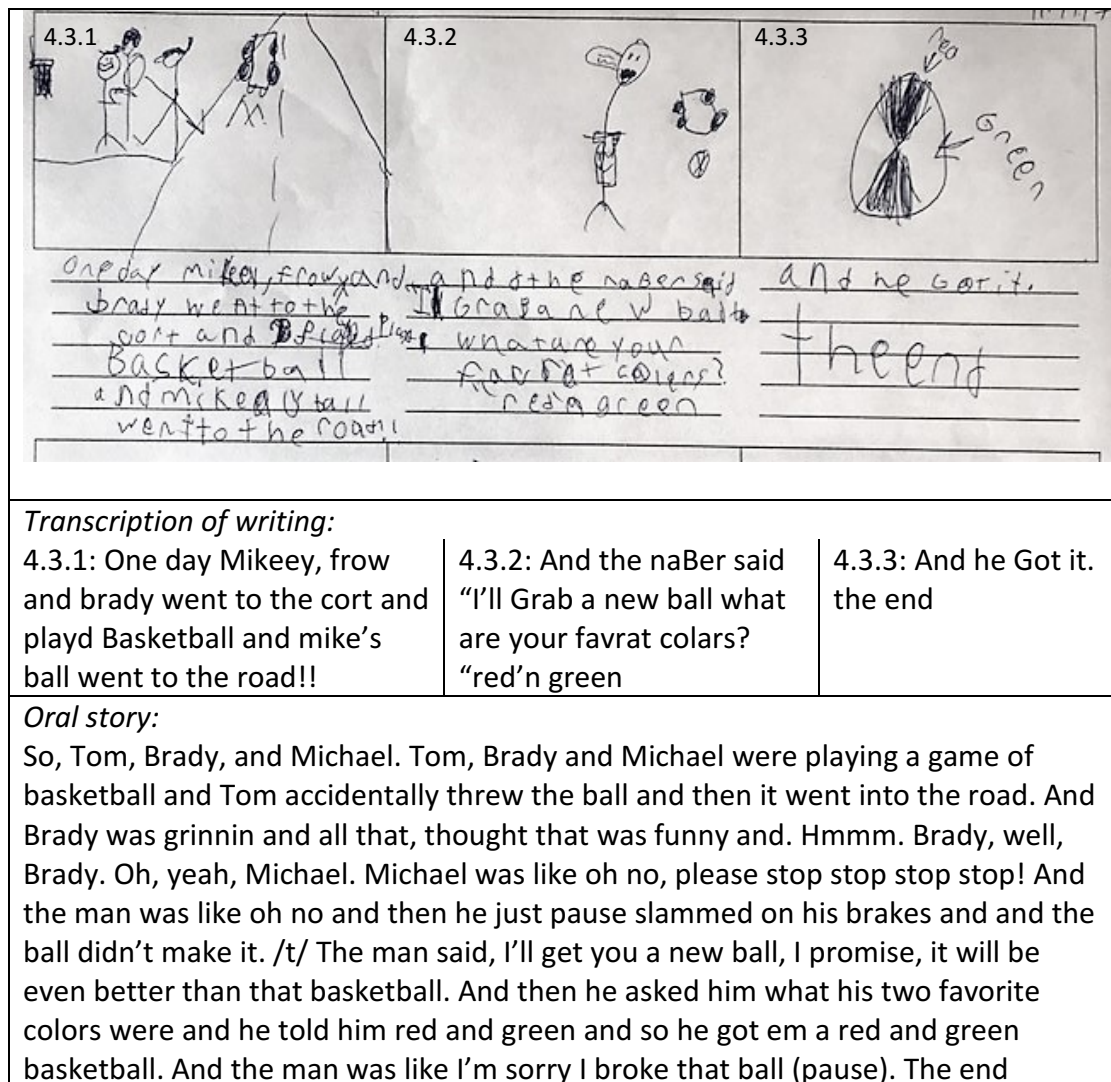 4.3.1
4.3.2
4.3.3
red
Green
One day mikeey, frowy and
brady went to the
cort and
Basketball
and mikeey ball
went to the road!!
and the naBer said
Grab a new ball
what are your
favrat colers?
red n green
and he Got it.
the end
Transcription of writing:
4.3.1: One day Mikeey, frow
and brady went to the cort and
playd Basketball and mike’s
ball went to the road!!
4.3.2: And the naBer said
“I’ll Grab a new ball what
are your favrat colars?
“red’n green
4.3.3: And he Got it.
the end
Oral story:
So, Tom, Brady, and Michael. Tom, Brady and Michael were playing a game of
basketball and Tom accidentally threw the ball and then it went into the road. And
Brady was grinnin and all that, thought that was funny and. Hmmm. Brady, well,
Brady. Oh, yeah, Michael. Michael was like oh no, please stop stop stop stop! And
the man was like oh no and then he just pause slammed on his brakes and and the
ball didn’t make it. /t/ The man said, I’ll get you a new ball, I promise, it will be
even better than that basketball. And then he asked him what his two favorite
colors were and he told him red and green and so he got em a red and green
basketball. And the man was like I’m sorry I broke that ball (pause). The end